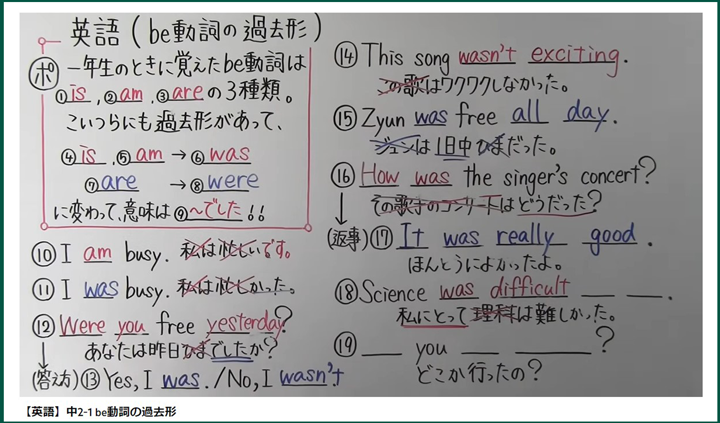 英語(be動詞の過去形)
ポ 一年生のときに覚えたbe動詞は
①is, ②am, ③areの3種類。
こいつらにも過去形があって、
④is, ⑤am → ⑥was
⑦are → ⑧were
に変わって、意味は⑨〜でした!!
⑩I am busy. 私は忙しいです。
⑪I was busy. 私は忙しかった。
⑫Were you free yesterday?
あなたは昨日ひまでしたか?
(答え方)⑬Yes, I was. /No, I wasn't
⑭This song wasn't exciting.
この歌はワクワクしなかった。
⑮Zyun was free all day.
ジュンは1日中ひまだった。
⑯How was the singer's concert?
その歌手のコンサートはどうだった?
(返事)⑰It was really good.
ほんとうによかったよ。
⑱Science was difficult __ __.
私にとって理科は難しかった。
⑲__ you __ __?
どこか行ったの?
【英語】中2-1 be動詞の過去形